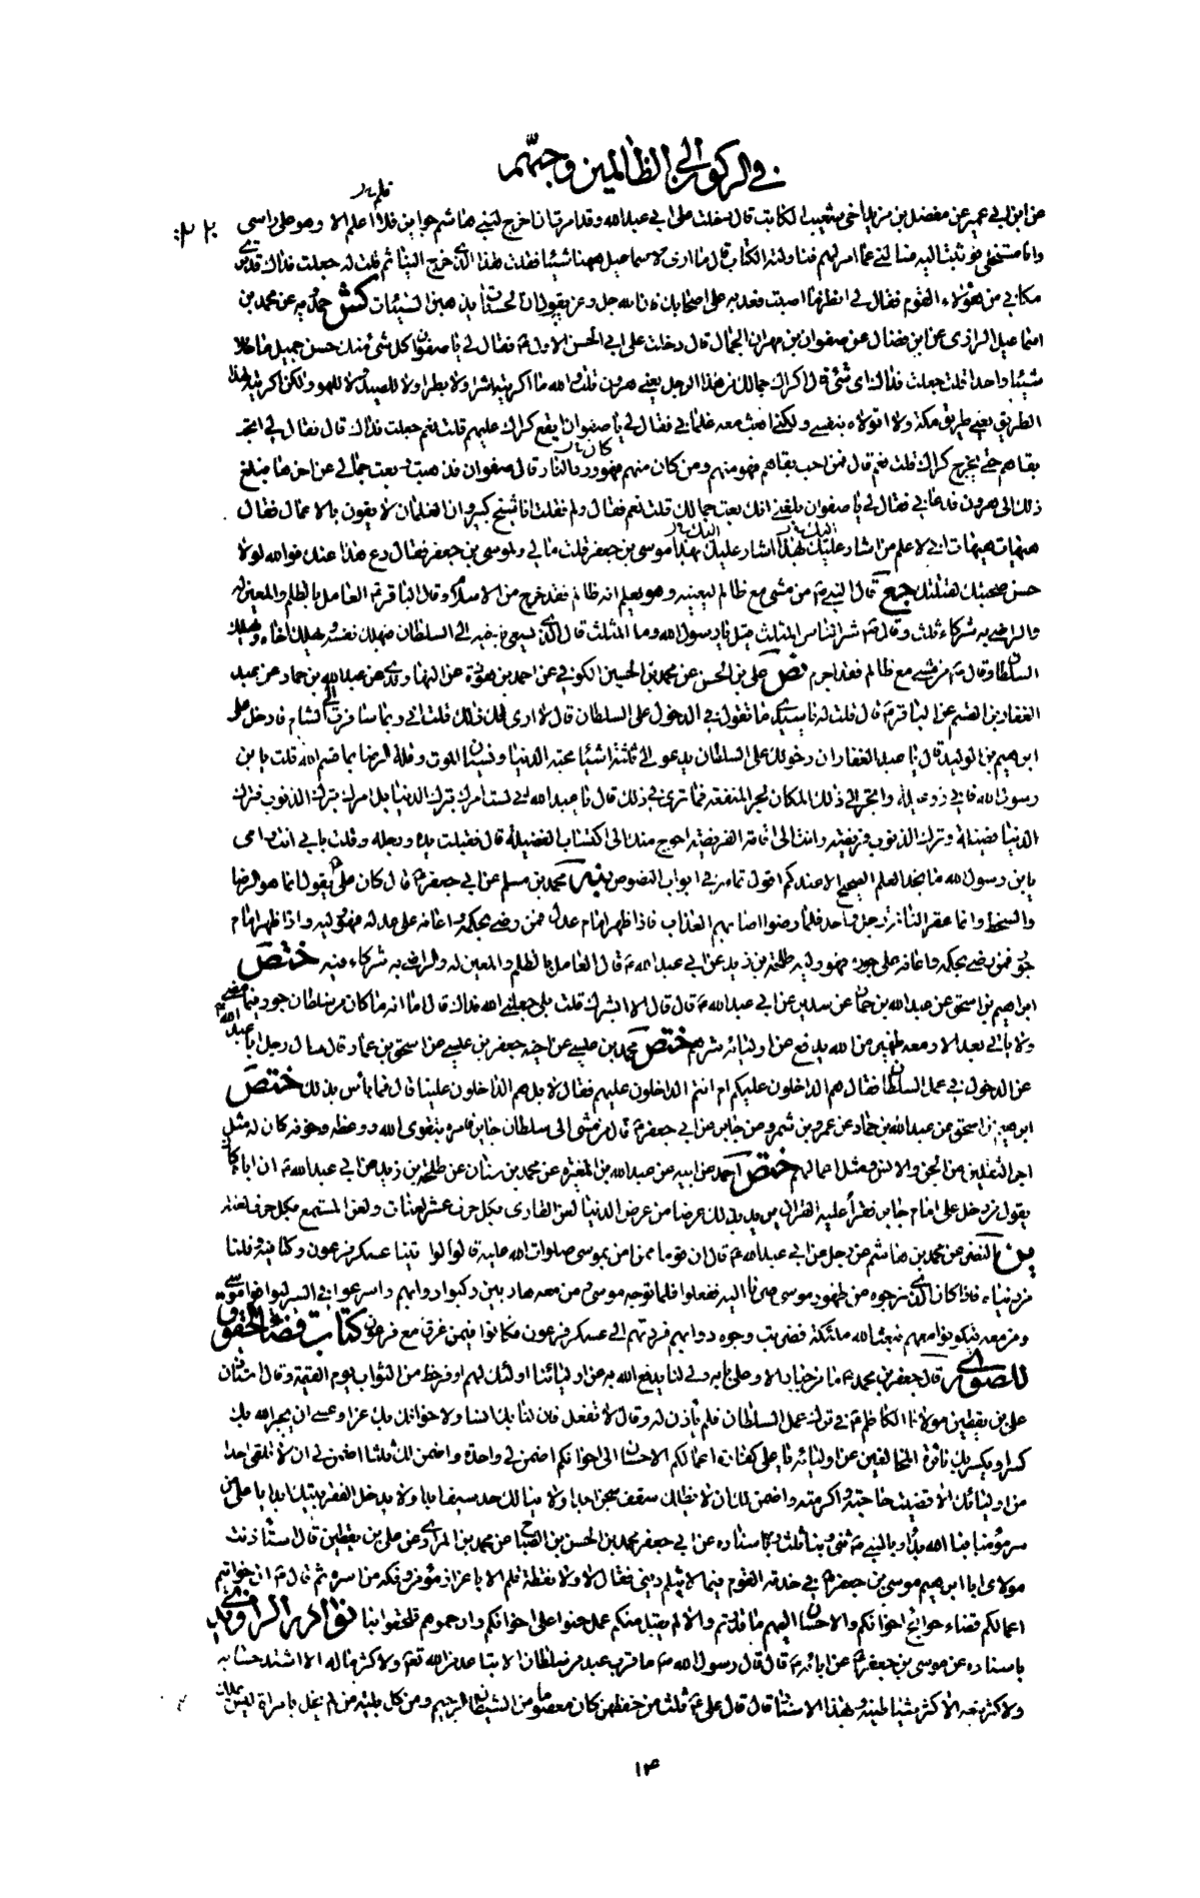 في الركون الى الظالمين وحبهم
قلم
عن ابن ابي عمير عن مفضل بن مزيد اخي شعيب الكاتب قال دخلت على ابي عبد الله وقد امرت ان اخرج لبني هاشم جوائز فلم اعلم الا وهو على راسي
وانا مستخلي فوثبت اليه فسالني عما امر لهم فناولته الكتاب قال ما ارى لاسماعيل ههنا شيئا فقلت هذا الذي خرج الينا ثم قلت له جعلت فداك قد ترى
مكاني من هؤلاء القوم فقال لي انظر ما اصبت فعد به على اصحابك فان الله جل وعز يقول ان الحسنات يذهبن السيئات كش حمدويه عن محمد بن
اسماعيل الرازي عن ابن فضال عن صفوان بن مهران الجمال قال دخلت على ابي الحسن الاول ع فقال لي يا صفوان كل شئ منك حسن جميل ما خلا
شيئا واحدا قلت جعلت فداك اي شئ قال اكراك جمالك من هذا الرجل يعني هرون قلت والله ما اكريته اشرا ولا بطرا ولا للصيد ولا للهو ولكن اكريته لهذا
الطريق يعني طريق مكة ولا اتولاه بنفسي ولكني ابعث معه غلماني فقال لي يا صفوان ايقع كراك عليهم قلت نعم جعلت فداك قال فقال لي اتحب
كان
بقاهم حتى يخرج كراك قلت نعم قال فمن احب بقاهم فهو منهم ومن كان منهم فهو ورد النار قال صفوان فذهبت وبعت جمالي عن اخرها فبلغ
ذلك الى هرون فدعاني فقال لي يا صفوان بلغني انك بعت جمالك قلت نعم فقال ولم فقلت انا شيخ كبير وان الغلمان لا يقون بالاعمال فقال
اليك اليك
هيهات هيهات اني لاعلم من اشار عليك بهذا اشار عليك بهذا موسى بن جعفر قلت ما لي ولموسى بن جعفر فقال دع هذا عنك فوالله لولا
حسن صحبتك لقتلتك جع قال النبي ص من مشى مع ظالم ليعينه وهو يعلم انه ظالم فقد خرج من الاسلام وقال الباقر ع العامل بالظلم والمعين له
والراضي به شركاء ثلث وقال ص شر الناس المثلث قيل يا رسول الله وما المثلث قال الذي يسعى باخيه الى السلطان فيهلك نفسه ويهلك اخاه ويهلك
السلطان وقال ص من مشى مع ظالم فقد اجرم نص علي بن الحسن عن محمد بن الحسين الكوفي عن احمد بن هوذة عن النهاوندي عن عبد الله بن حماد عن عبد
الغفار بن القسم عن الباقر ع قال قلت له يا سيدي ما تقول في الدخول على السلطان قال لا ارى لك ذلك قلت اني ربما سافرت الى الشام فادخل على
ابرهيم بن الوليد قال يا عبد الغفار ان دخولك على السلطان يدعو الى ثلثة اشياء محبة الدنيا ونسيان الموت وقلة الرضا بما قسم الله قلت يا بن
رسول الله فاني ذو عيلة واتجر الى ذلك المكان لجر المنفعة فما ترى في ذلك قال يا عبد الله اني لست امرك بترك الدنيا بل امرك بترك الذنوب فترك
الدنيا فضيلة وترك الذنوب فريضة وانت الى اقامة الفريضة احوج منك الى اكتساب الفضيلة قال فقبلت يده ورجله وقلت بابي انت وامي
يا بن رسول الله فما نجد العلم الصحيح الا عندكم اقول تمامه في ابواب النصوص محمد بن مسلم عن ابي جعفر ع قال كان علي ع يقول انما هو الرضا
والسخط وانما عقر الناقة رجل واحد فلما رضوا اصابهم العذاب فاذا ظهر امام عدل فمن رضي بحكمه واعانه على عدله فهو وليه واذا ظهر امام
جور فمن رضي بحكمه واعانه على جوره فهو وليه طلحة بن زيد عن ابي عبد الله ع قال العامل بالظلم والمعين له والراضي به شركاء فيه ختص
ابراهيم بن اسحق عن عبد الله بن حماد عن سدير عن ابي عبد الله ع قال قال الا ابشرك قلت بلى جعلني الله فداك قال اما انه ما كان من سلطان جور فيما مضى
ولا ياتي بعد الا ومعه ظهير من الله يدفع عن اوليائه شرهم ختص محمد بن عيسى عن اخيه جعفر بن عيسى عن اسحق بن عمار قال سال رجل ابا عبد الله
عن الدخول في عمل السلطان فقال هم الداخلون عليكم ام انتم الداخلون عليهم فقال لا بل هم الداخلون علينا قال فما باس بذلك ختص
ابرهيم بن اسحق عن عبد الله بن حماد عن عمرو بن شمر وعن جابر عن ابي جعفر ع قال من مشى الى سلطان جاير فامره بتقوى الله ووعظه وخوفه كان له مثل
اجر الثقلين من الجن والانس ومثل اعمالهم ختص احمد عن ابيه عن عبد الله بن المغيرة عن محمد بن سنان عن طلحة بن زيد عن ابي عبد الله ع ان اباه كان
يقول من دخل على امام جاير فقرأ عليه القران يريد بذلك عرضا من عرض الدنيا لعن القارى بكل حرف عشر لعنات ولعن المستمع بكل حرف لعنة
ين النضر عن محمد بن هاشم عن رجل عن ابي عبد الله ع قال ان قوما ممن امن بموسى صلوات الله عليه قالوا لو اتينا عسكر فرعون وكنا فيه ونلنا
من دنياه فاذا كان الذي نرجوه من ظهور موسى صرنا اليه ففعلوا فلما توجه موسى ومن معه هاربين ركبوا دوابهم واسرعوا في السير ليوافوا موسى
ومن معه فيكونوا معهم فبعث الله ملائكة فضربت وجوه دوابهم فردتهم الى عسكر فرعون فكانوا فيمن غرق مع فرعون كتاب قضاء الحقوق
للصوري قال جعفر بن محمد ع ما من جبار الا وعلى بابه ولي لنا يدفع الله به عن اوليائنا اولئك لهم اوفر حظ من الثواب يوم القيمة وقال استاذن
علي بن يقطين مولانا الكاظم ع في ترك عمل السلطان فلم ياذن له وقال لا تفعل فان لنا بك انسا ولاخوانك بك عزا وعسى ان يجبر الله بك
كسرا ويكسر بك نائرة المخالفين عن اوليائه يا علي كفارة اعمالكم الاحسان الى اخوانكم اضمن لي واحدة واضمن لك ثلثا اضمن لي ان لا تلقى احدا
من اوليائنا الا قضيت حاجته واكرمته واضمن لك ان لا يظلك سقف سجن ابدا ولا ينالك حد سيف ابدا ولا يدخل الفقر بيتك ابدا يا علي من
سر مؤمنا فبالله بدأ وبالنبي ص ثنى وبنا ثلث وباسناده عن ابي جعفر محمد بن الحسن بن الصباح عن محمد بن المرادي عن علي بن يقطين قال استاذنت
مولاي ابا ابرهيم موسى بن جعفر ع في خدمة القوم فيما لا يثلم ديني فقال لا ولا نقطة قلم الا باعزاز مؤمن وفكه من اسره ثم قال ع ان خواتيم
اعمالكم قضاء حوائج اخوانكم والاحسان اليهم ما قدرتم والا لم يقبل منكم عمل حنوا على اخوانكم وارحموهم تلحقوا بنا نوادر الراوندي
باسناده عن موسى بن جعفر عن ابائه ع قال قال رسول الله ص ما قرب عبد من سلطان الا تباعد من الله تعالى ولا كثر ماله الا اشتد حسابه
ولا كثر تبعه الا كثر شياطينه وبهذا الاسناد قال قال علي ع ثلث من حفظهن كان معصوما من الشيطان الرجيم ومن كل بلية من لم يخل بامراة ليس يملك
١٤